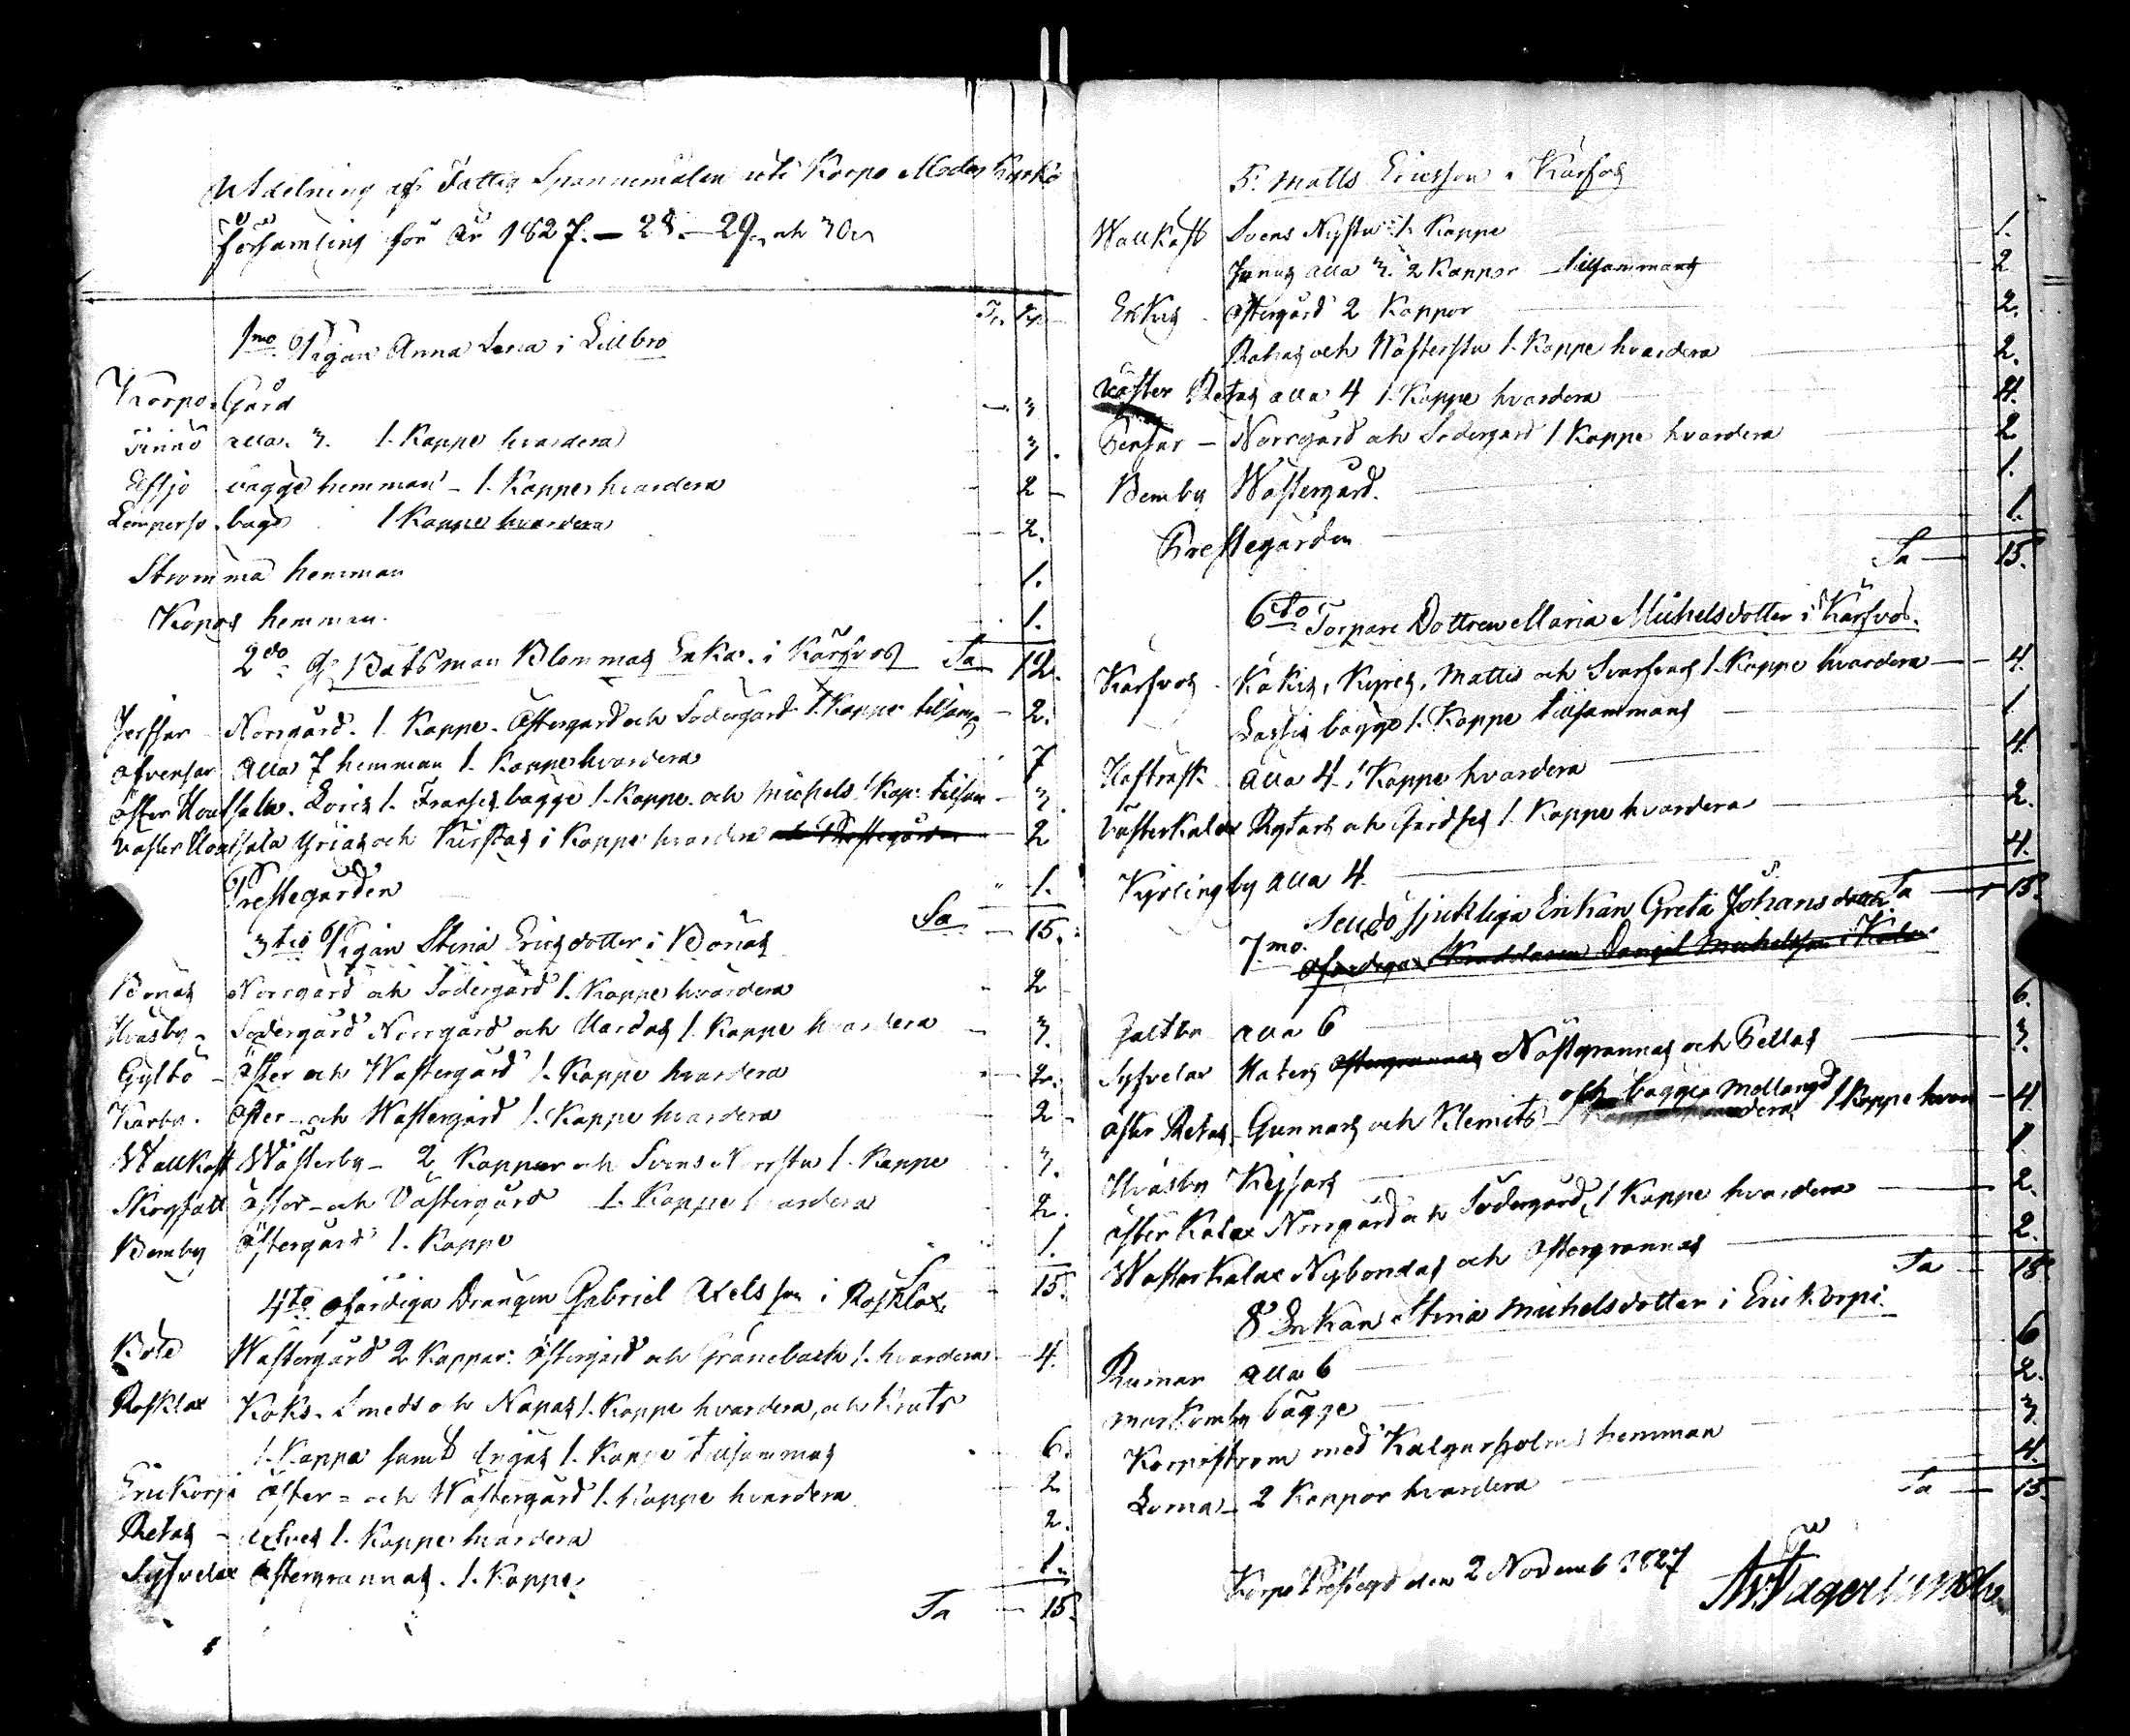 Utdelning af Fattig Spannemålen uti Korpo Moder Kyrko
Församling för År 1827.- 28.- 29. och 30.
Tr. Kp.
1mo Pigan Anna Lena i Lillbro
Korpo Gård - 3
Finnö alla 3. 1. Kappe hvardera 3.
Elfsjö bägge hemman - 1. Kappe hvardera 2
Lempersö bägge 1 Kappe hvardera 2.
Strömma hemman 1.
Kopos hemman. 1.
2do Batsman Blommas Enka i Kårfvos Sa 12.
Jerfsor Norrgård. 1. Kappe. Östergård och Södergård 1 Kappe tilsam 2.
Ofvensor Alla 7 hemman 1. Kappe hvardera 7
Öster Hou[...] Loris 1. Franses bägge 1. Kappe och Michels 1 Kap: tilsam 3.
Väster Hou[...] Yrias och Kirstas 1 Kappe hvardera och Prestegården 2
Prestegården 1.
Sa 15.
3tio Pigan Stina Ericsdotter i Bonäs
Bonäs Norrgård och Södergård 1. Kappe hvardera 2
Hväsby - Södergård Norrgård och Hardas 1. Kappe hvardera 3.
Gyltö - Öster och Westergård 1. Kappe hvardera 2.
Karby. Öster- och Westergård 1. Kappe hvardera 2
Wallkast Westerby - 2 Kappor och Svens Norrstu 1. Kappe 3.
Skogfall Öster- och Vestergård 1. Kappe hvardera 2.
Bemby Östergård 1. Kappe 1.
15.
4to ofärdiga Drängen Gabriel Axelsson i Rosklax.
Kold Westergård 2 Kappar: Östergård och Gräneback 1. hvardera 4.
Rosklax Koks. Smeds och Napas 1. Kappe hvardera, och Knuts
1. Kappe samt Ingas 1. Kappe tillsammas 6.
Erickorpi Öster- och Westergård 1. Kappe hvardera 2
Retas - 1. Kappe hvardera 2.
Syfvelax Östergrannas. 1. Kappe 1.
Sa 15.
5. Matts Ericsson i Kårfvos
Wallkast Svens Nystu 1. Kappe 1.
Jonas alla 3. 2 Kappor tillsammans 2
Enkis. Östergård 2 Kappor 2.
Rohas och Westerstu 1. Kappe hvardera 2.
Väster Retas alla 4 1. Kappe hvardera 4.
Bensar - Norrgård och Södergård 1 Kappe hvardera 2
Bemby Westergård. 1.
Prestegården 1.
Sa 15.
6to Torpare Dottren Maria Michelsdotter i Kårfvos.
Kårfvos. Kokis, Kypes, Mattis och Svarfvars 1. Kappe hvardera 4.
Lassis bägge 1. Kappe tillsammans 1
Haftrask alla 4. 1 Kappe hvardera 4.
Vesterkalax Rytars och Gardses 1. Kappe hvardera 2.
Kyrlingby alla 4. 4.
Sa 15.
7mo. Sendo sjukliga Enkan Greta Johansdotter
ofärdiga Kruddaren Daniel Michelsson i Kalax
Galtbo alla 6 6.
Syfvelax Haters Östergrannas Nöstgrannas och Pellas 3.
Öster Retas Gunnars och Klemets och bägge Mellangd 1 Kappe hvar 4
Hväsby Keisars 1.
Öster Kalax Norrgård och Södergård, 1 Kappe hvardera 2.
Wester Kalax Nybondas och Östergrannas 2.
Sa 18
8 Enkan Stina Michelsdotter i Erickorpi.
Rumar alla 6 6
Markomby bägge 2.
Korpoström med Kalgarholms hemman 3
Lomas 2 Kappor hvardera 4.
Sa 15.
Korpo Prestegd den 2 Novemb 1827